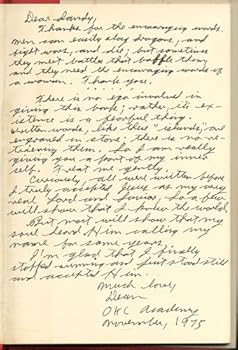 Dear Sandy,
Thanks for the encouraging words.
Men can easily slay dragons, and
fight wars, and die; but sometimes
they meet battles that baffle them
and they need the encouraging words of
a woman. Thank you.
.......
There is no ego involved in
giving this book; rather, its ex-
istence is a fearful thing.
Written words, like these "islands" are
engraved in stone; there is no re-
trieving them. So I am really
giving you a part of my inner
self. Treat me gently.
Curiously, all were written before
I truly accepted Jesus as my very
real Lord and Savior. So a few
will show that I knew the world.
But most will show that my
soul heard Him calling my
name for some years.
I'm glad that I finally
stopped running and just stood still
and accepted Him...
Much love,
Dean
OKC Academy
November, 1975